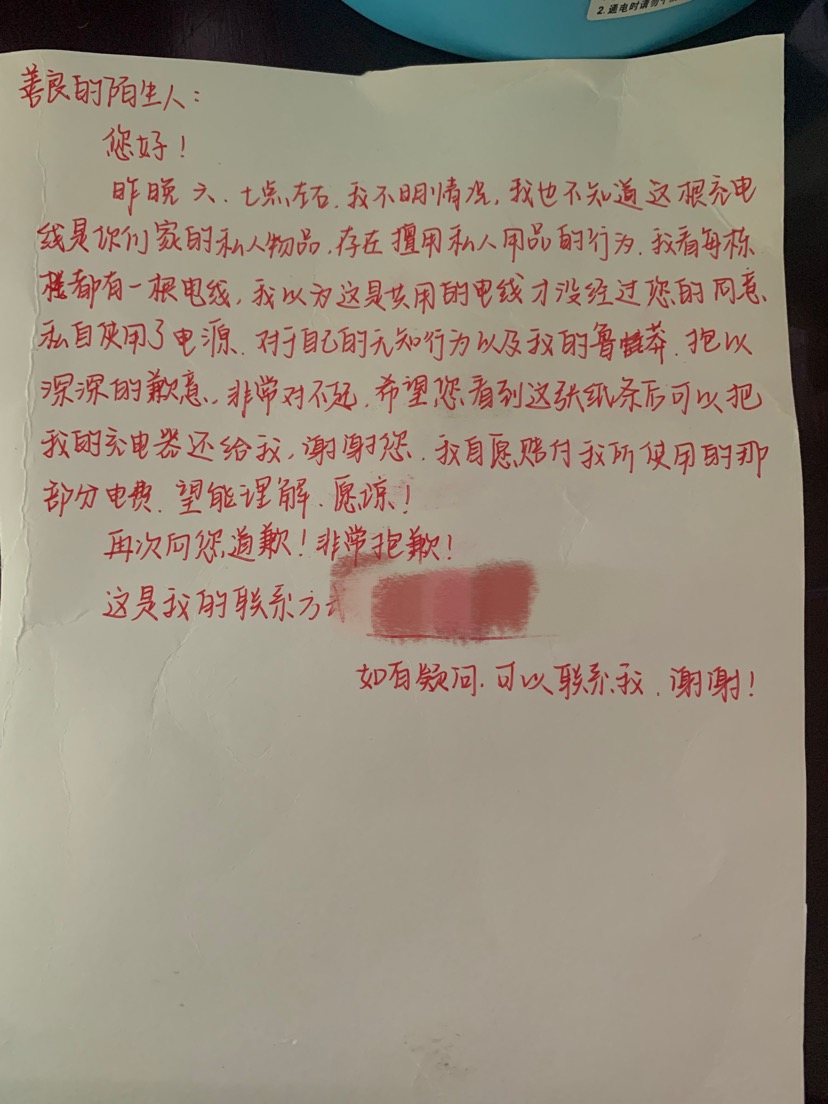 2. 通电时请勿
善良的陌生人：
您好！
昨晚六、七点左右，我不明情况，我也不知道这根充电
线是你们家的私人物品，存在擅用私人用品的行为，我看每栋
楼都有一根电线，我以为这是共用的电线才没经过您的同意、
私自使用了电源，对于自己的无知行为以及我的鲁莽，抱以
深深的歉意，非常对不起，希望您看到这张纸条后可以把
我的充电器还给我，谢谢您，我自愿赔付我所使用的那
部分电费，望能理解、愿谅！
再次向您道歉！非常抱歉！
这是我的联系方式
如有疑问，可以联系我，谢谢！